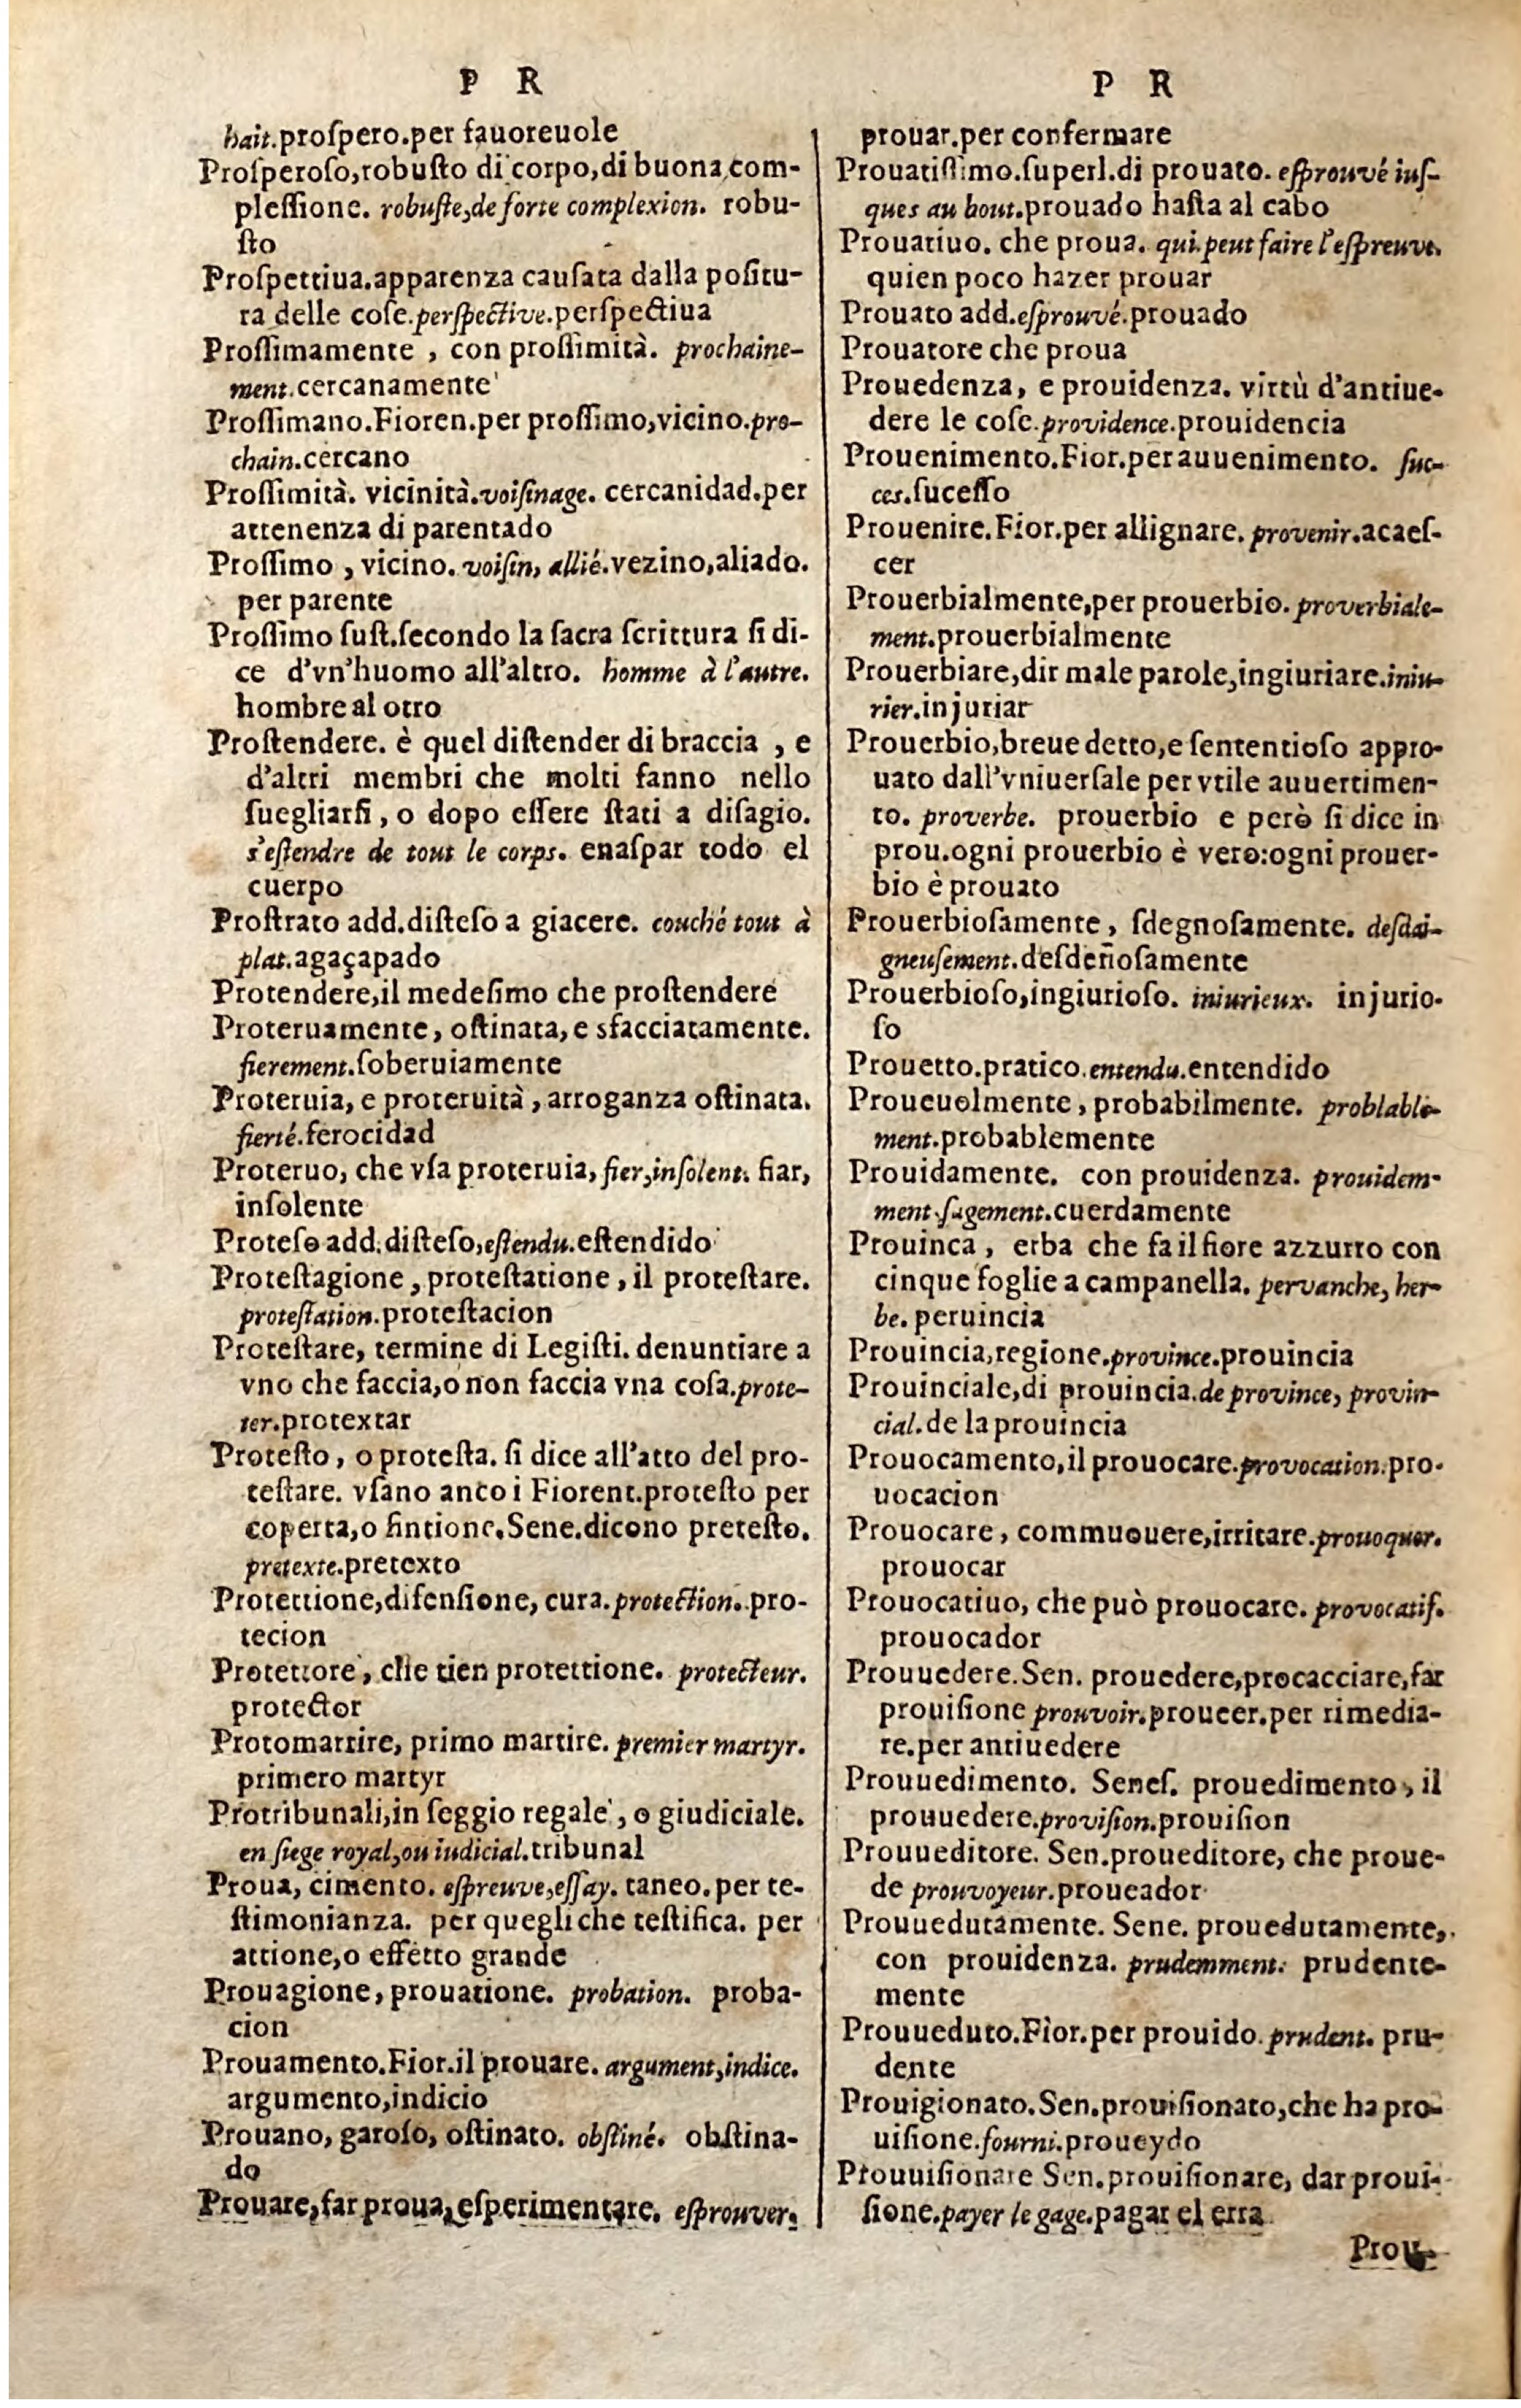 P R
hait.proſpero.per fauoreuole
Proſperoſo,robuſto di corpo,di buona com-
pleſſione. robuſte,de forte complexion. robu-
ſto
Proſpettiua.apparenza cauſata dalla poſitu-
ra delle coſe.perſpective.perſpectiua
Proſſimamente , con proſſimità. prochaine-
ment.cercanamente
Proſſimano.Fioren.per proſſimo,vicino.pro-
chain.cercano
Proſſimità. vicinità.voiſinage. cercanidad.per
attenenza di parentado
Proſſimo , vicino. voiſin, allié.vezino,aliado.
per parente
Proſſimo ſuſt.ſecondo la ſacra ſcrittura ſi di-
ce d'vn'huomo all'altro. homme à l'autre.
hombre al otro
Proſtendere. è quel diſtender di braccia , e
d'altri membri che molti fanno nello
ſuegliarſi, o dopo eſſere ſtati a diſagio.
s'eſtendre de tout le corps. enaſpar todo el
cuerpo
Proſtrato add.diſteſo a giacere. couché tout à
plat.agaçapado
Protendere,il medeſimo che proſtendere
Proteruamente, oſtinata, e sfacciatamente.
fierement.ſoberuiamente
Proteruia, e proteruità, arroganza oſtinata.
fierté.ferocidad
Proteruo, che vſa proteruia, fier,inſolent. fiar,
inſolente
Proteſo add.diſteſo,eſtendu.eſtendido
Proteſtagione, proteſtatione, il proteſtare.
proteſtation.proteſtacion
Proteſtare, termine di Legiſti. denuntiare a
vno che faccia,o non faccia vna coſa.prote-
ter.protextar
Proteſto, o proteſta. ſi dice all'atto del pro-
teſtare. vſano anco i Fiorent.proteſto per
coperta,o fintione.Sene.dicono preteſto.
pretexte.pretexto
Protettione,difenſione, cura.protection. pro-
tecion
Protettore, che tien protettione. protecteur.
protector
Protomartire, primo martire. premier martyr.
primero martyr
Protribunali,in ſeggio regale, o giudiciale.
en ſiege royal,ou iudicial.tribunal
Proua, cimento. eſpreuve,eſſay. taneo.per te-
ſtimonianza. per quegli che teſtifica. per
attione,o effetto grande
Prouagione, prouatione. probation. proba-
cion
Prouamento.Fior.il prouare. argument,indice.
argumento,indicio
Prouano, garoſo, oſtinato. obſtiné. obſtina-
do
Prouare,far proua,eſperimentare. eſprouver.
P R
prouar.per confermare
Prouatiſſimo.ſuperl.di prouato. eſprouvé iuſ-
ques au bout.prouado haſta al cabo
Prouatiuo. che proua. qui peut faire l'eſpreuve.
quien poco hazer prouar
Prouato add.eſprouvé.prouado
Prouatore che proua
Prouedenza, e prouidenza. virtù d'antiue-
dere le coſe.providence.prouidencia
Prouenimento.Fior.per auuenimento. ſuc-
ces.ſuceſſo
Prouenire.Fior.per allignare. provenir.acaeſ-
cer
Prouerbialmente,per prouerbio. proverbiale-
ment.prouerbialmente
Prouerbiare,dir male parole,ingiuriare.iniu-
rier.injuriar
Prouerbio,breue detto,e ſententioſo appro-
uato dall'vniuerſale per vtile auuertimen-
to. proverbe. prouerbio e però ſi dice in
prou.ogni prouerbio è vero:ogni prouer-
bio è prouato
Prouerbioſamente, ſdegnoſamente. deſdai-
gneuſement.deſdeñoſamente
Prouerbioſo,ingiurioſo. iniurieux. injurio-
ſo
Prouetto.pratico.entendu.entendido
Proueuolmente, probabilmente. problable-
ment.probablemente
Prouidamente. con prouidenza. prouidem-
ment.ſagement.cuerdamente
Prouinca, erba che fa il fiore azzurro con
cinque foglie a campanella. pervanche, her-
be. peruincia
Prouincia,regione.province.prouincia
Prouinciale,di prouincia.de province, provin-
cial.de la prouincia
Prouocamento,il prouocare.provocation.pro-
uocacion
Prouocare, commuouere,irritare.prouoquer.
prouocar
Prouocatiuo, che può prouocare. provocatif.
prouocador
Prouuedere.Sen. prouedere,procacciare,far
prouiſione prouvoir.proueer.per rimedia-
re.per antiuedere
Prouuedimento. Seneſ. prouedimento, il
prouuedere.proviſion.prouiſion
Prouueditore. Sen.proueditore, che proue-
de prouvoyeur.proueador
Prouuedutamente. Sene. prouedutamente,
con prouidenza. prudemment. prudente-
mente
Prouueduto.Fior.per prouido. prudent. pru-
dente
Prouigionato.Sen.prouiſionato,che ha pro-
uiſione.fourni.proueydo
Prouuiſionare Sen.prouiſionare, dar proui-
ſione.payer le gage.pagar el erra
Prou-